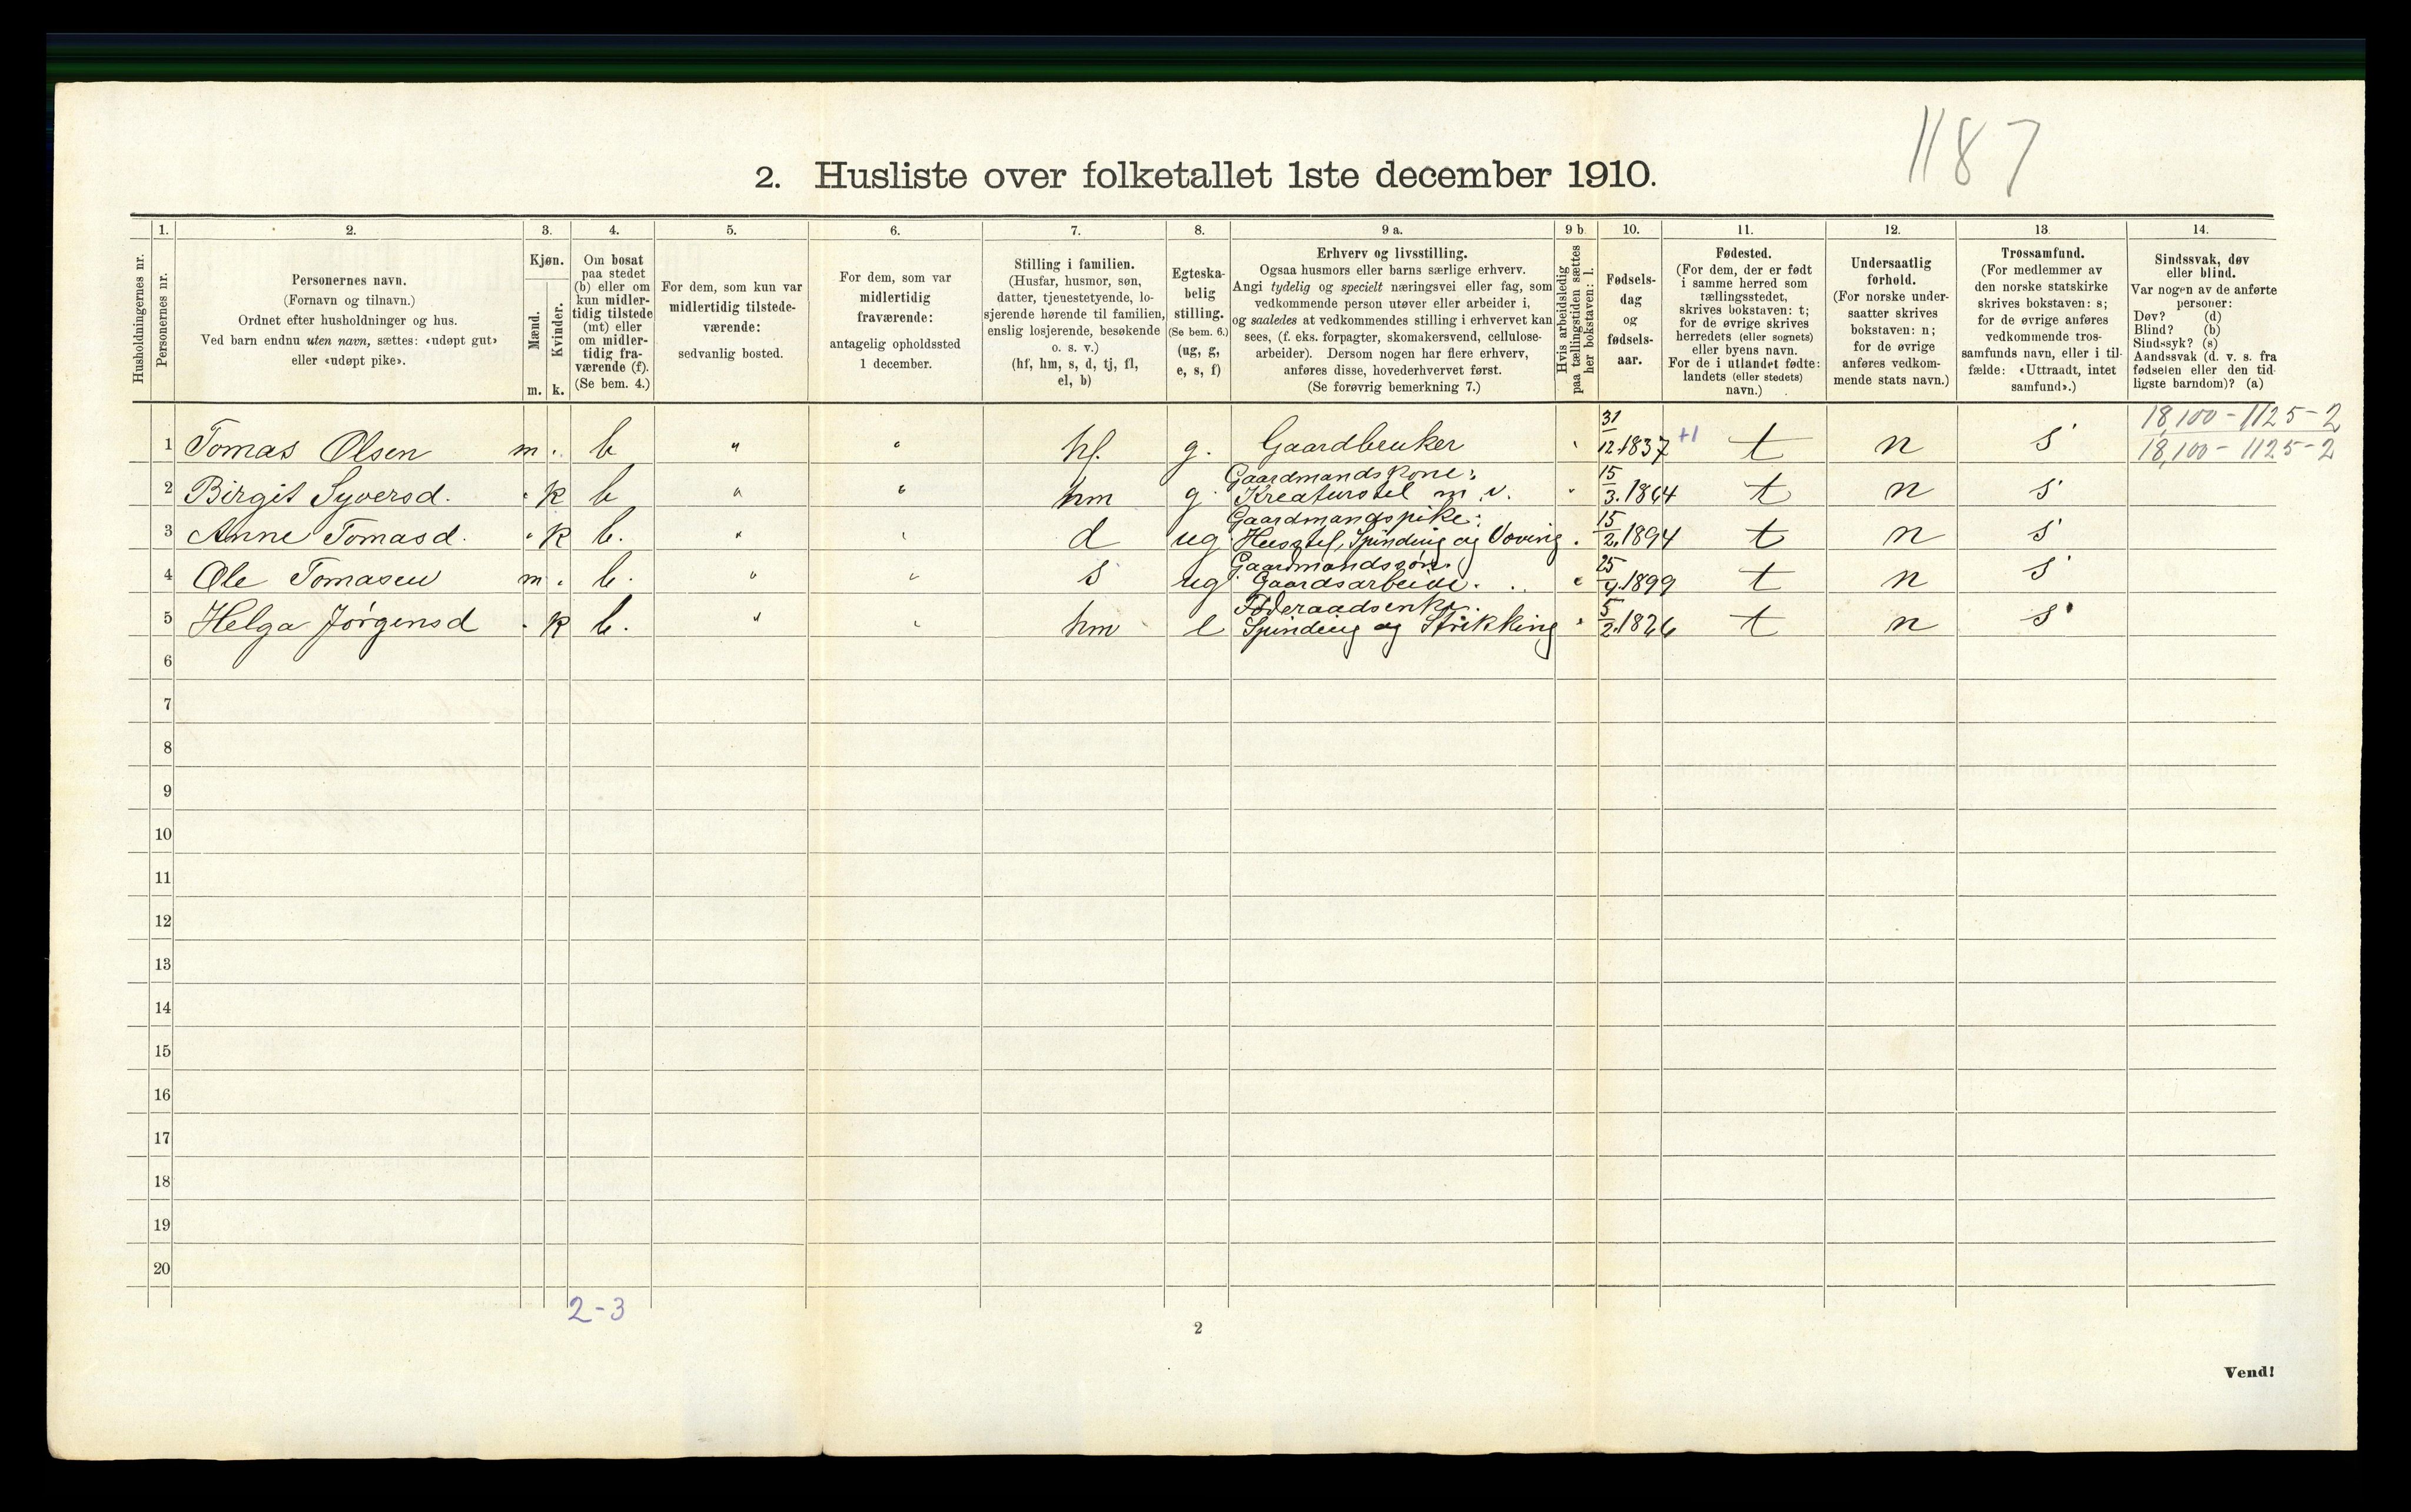 1187
2. Husliste over folketallet 1ste december 1910.
Husholdningernes nr.
1.
Personernes nr.
2.
Personernes navn.
(Fornavn og tilnavn.)
Ordnet efter husholdninger og hus.
Ved barn endnu uten navn, sættes: «udøpt gut»
eller «udøpt pike».
3.
Kjøn.
Mænd.
Kvinder.
m.
k.
4.
Om bosat
paa stedet
(b) eller om
kun midler-
tidig tilstede
(mt) eller
om midler-
tidig fra-
værende (f).
(Se bem. 4.)
5.
For dem, som kun var
midlertidig tilstede-
værende:
sedvanlig bosted.
6.
For dem, som var
midlertidig
fraværende:
antagelig opholdssted
1 december.
7.
Stilling i familien.
(Husfar, husmor, søn,
datter, tjenestetyende, lo-
sjerende hørende til familien,
enslig losjerende, besøkende
o. s. v.)
(hf, hm, s, d, tj, fl,
el, b)
8.
Egteska-
belig
stilling.
(Se bem. 6.)
(ug, g,
e, s, f)
9 a.
Erhverv og livsstilling.
Ogsaa husmors eller barns særlige erhverv.
Angi tydelig og specielt næringsvei eller fag, som
vedkommende person utøver eller arbeider i,
og saaledes at vedkommendes stilling i erhvervet kan
sees, (f. eks. forpagter, skomakersvend, cellulose-
arbeider). Dersom nogen har flere erhverv,
anføres disse, hovederhvervet først.
(Se forøvrig bemerkning 7.)
9 b
Hvis arbeidsledig
paa tællingstiden sættes
her bokstaven: l.
10.
Fødsels-
dag
og
fødsels-
aar.
11.
Fødested.
(For dem, der er født
i samme herred som
tællingsstedet,
skrives bokstaven: t;
for de øvrige skrives
herredets (eller sognets)
eller byens navn.
For de i utlandet fødte:
landets (eller stedets)
navn.)
12.
Undersaatlig
forhold.
(For norske under-
saatter skrives
bokstaven: n;
for de øvrige
anføres vedkom-
mende stats navn.)
13.
Trossamfund.
(For medlemmer av
den norske statskirke
skrives bokstaven: s;
for de øvrige anføres
vedkommende tros-
samfunds navn, eller i til-
fælde: «Uttraadt, intet
samfund».)
14.
Sindssvak, døv
eller blind.
Var nogen av de anførte
personer:
Døv? (d)
Blind? (b)
Sindssyk? (s)
Aandssvak (d. v. s. fra
fødselen eller den tid-
ligste barndom)? (a)
18,100 - 1125 - 2
1 Tomas Olsen m . b " " hf. g. Gaardbruker 31/12.1837 +1 t n s 18,100 - 1125 - 2
Gaardmandskone:
2 Birgit Syversd. " k b " " hm g. Kreaturstel m. v. " 15/3.1864 t n s
Gaardmandspike:
3 Anne Tomasd. " k b. " " d ug Husstel, Spinding og Væving . 15/2.1894 t n s
Gaardmandssøn.
4 Ole Tomasen m . b. " " s ug Gaardsarbeide. " 25/4.1899 t n s
Føderaadsenke.
5 Helga Jörgensd . k b. " " hm e Spinding og Strikking " 5/2.1826 t n s
6
7
8
9
10
11
12
13
14
15
16
17
18
19
20
2-3
2
Vend!